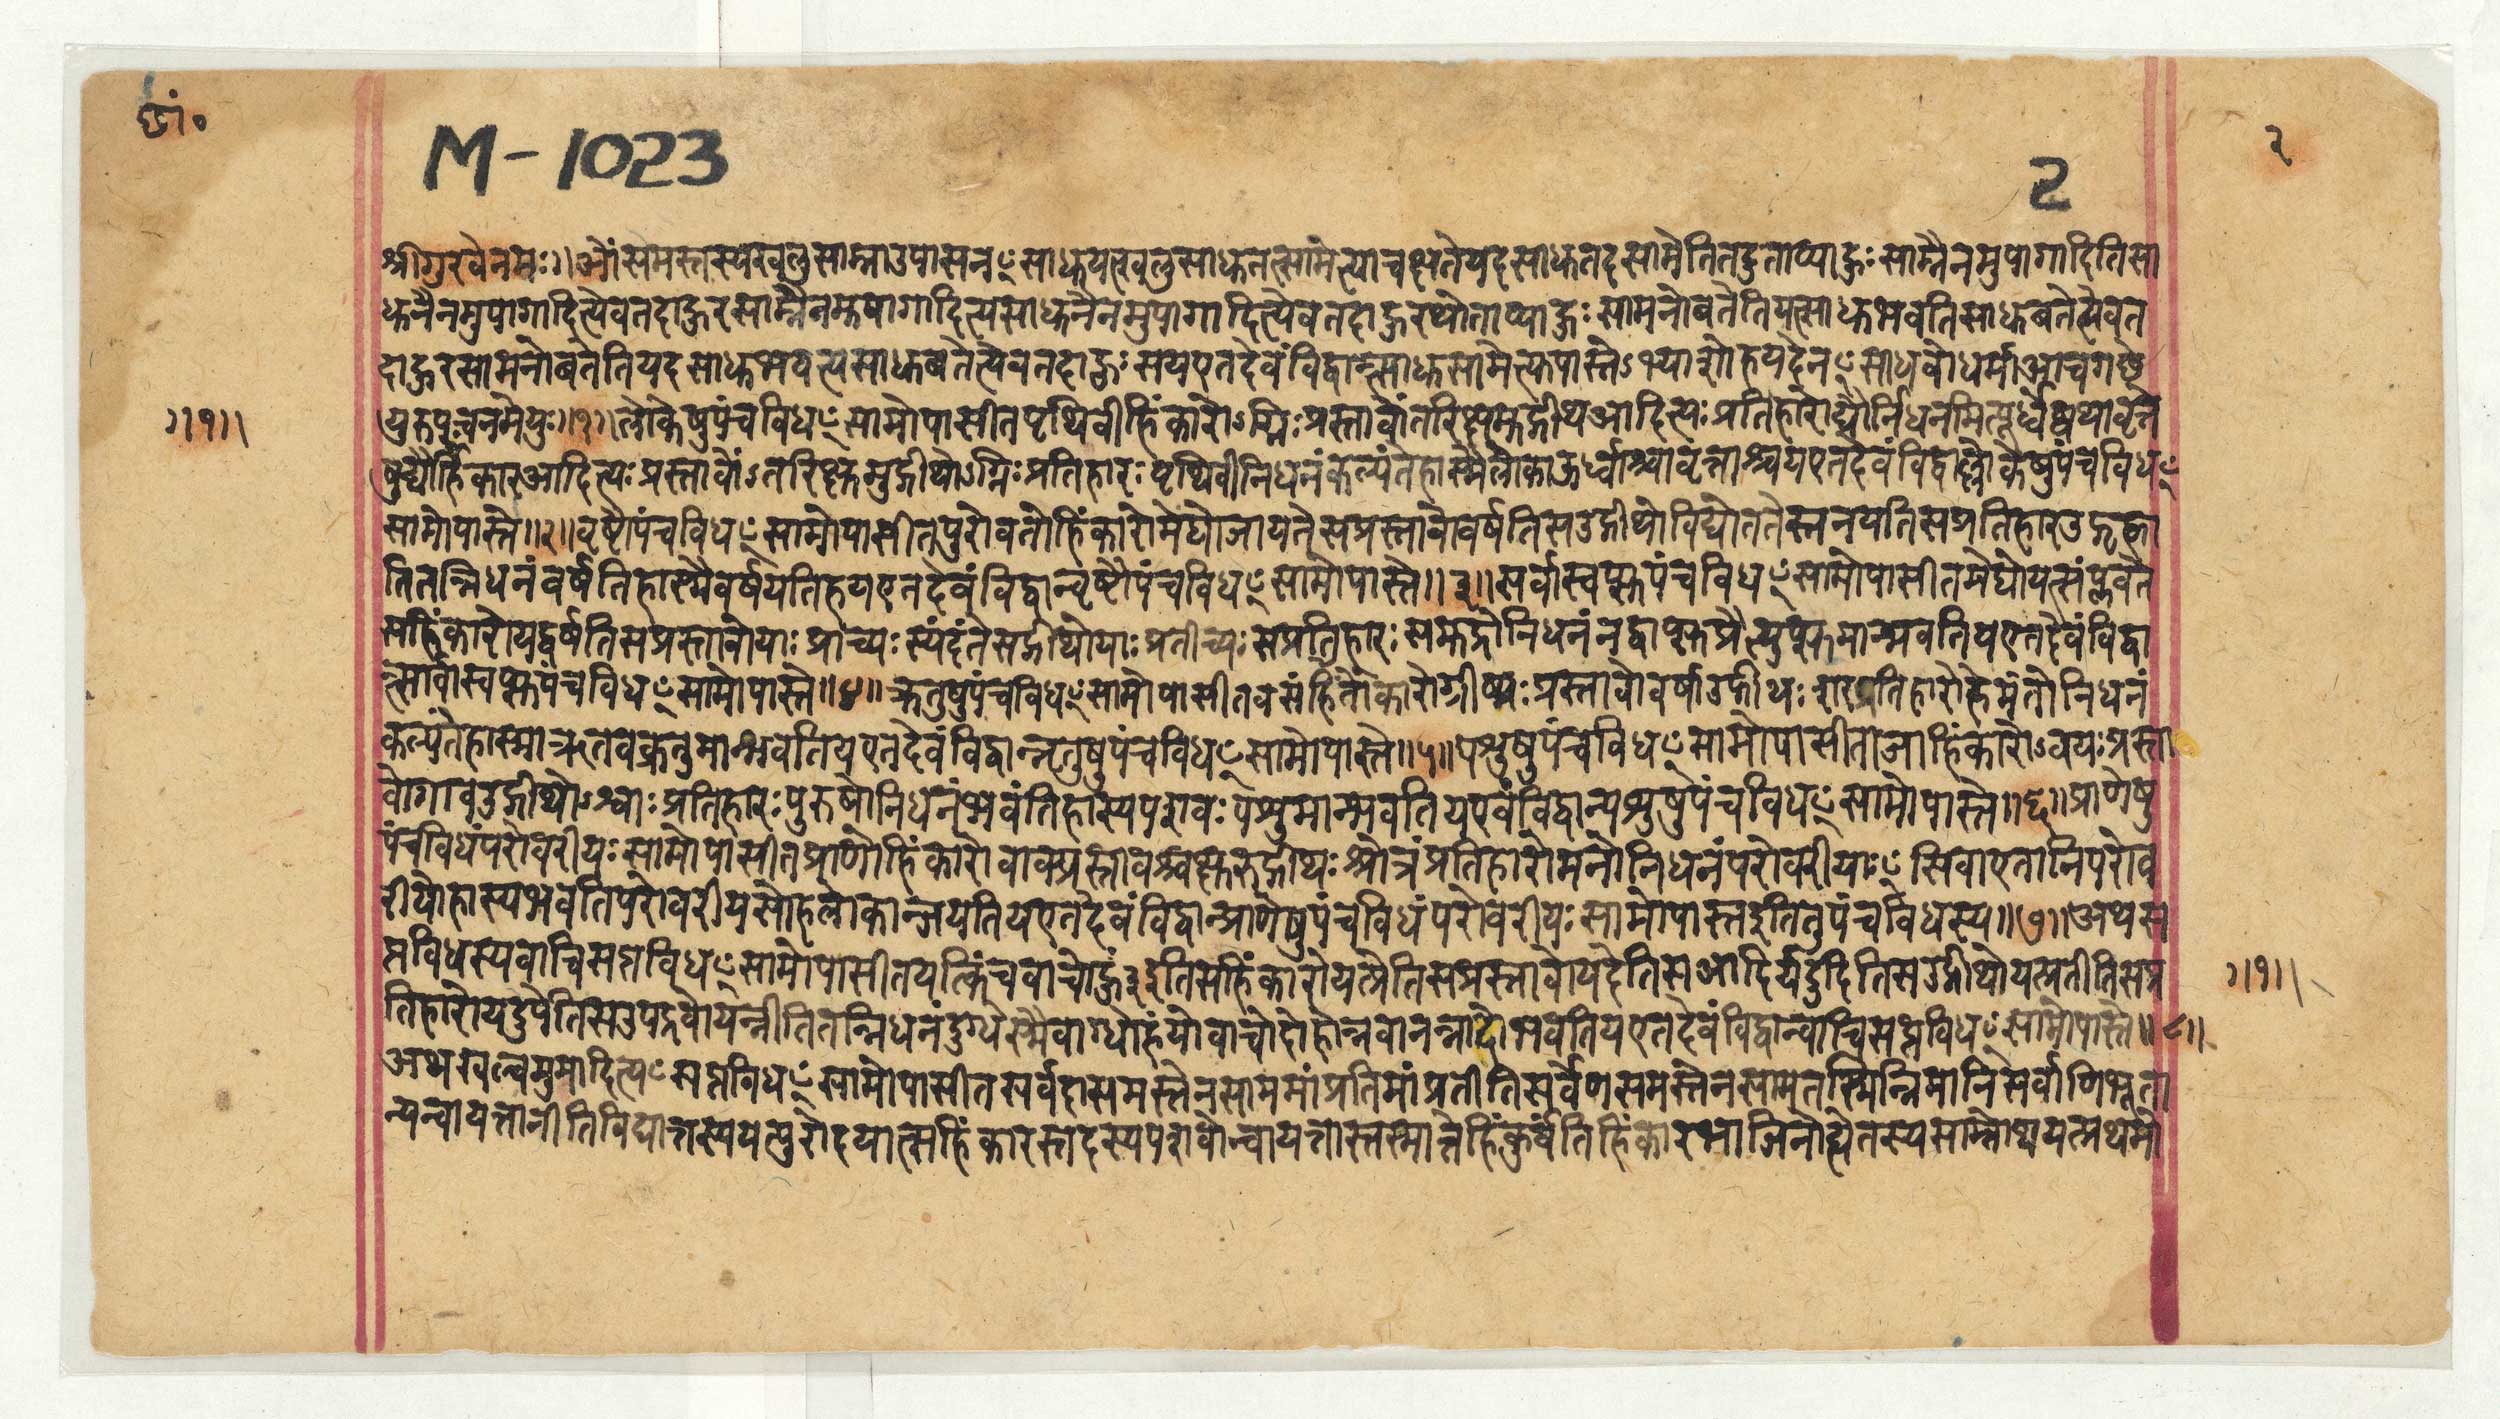 छां०
M-1023
2
२
श्रीगुरवेनमः॥ओंसमस्तस्यखलुसाम्नउपासनꣳसाधुयत्खलुसाधुतत्सामेत्याचक्षतेयदसाधुतदसामेतितदुताप्याहुःसाम्नैनमुपागादितिसा
धुनैनमुपागादित्येवतदाहुरसाम्नैनमुपागादित्यसाधुनैनमुपागादित्येवतदाहुरथोताप्याहुःसामनोबतेतियत्साधुभवतिसाधुबतेत्येवत
दाहुरसामनोबतेतियदसाधुभवत्यसाधुबतेत्येवतदाहुःसयएतदेवंविद्वान्साधुसामेत्युपास्तेऽभ्याशोहयदेनꣳसाधवोधर्माआचगच्छे
युरुपचनमेयुः॥१॥लोकेषुपंचविधꣳसामोपासीतपृथिवीहिंकारोऽग्निःप्रस्तावोंतरिक्षमुद्गीथआदित्यःप्रतिहारोद्यौर्निधनमित्यूर्ध्वेष्वथावृत्ते
षुद्यौर्हिंकारआदित्यःप्रस्तावोंऽतरिक्षमुद्गीथोऽग्निःप्रतिहारःपृथिवीनिधनंकल्पंतेहास्मैलोकाऊर्ध्वाश्चावृत्ताश्चयएतदेवंविद्वाल्लोकेषुपंचविधꣳ
सामोपास्ते॥२॥वृष्टौपंचविधꣳसामोपासीतपुरोवातोहिंकारोमेघोजायतेसप्रस्तावोवर्षतिसउद्गीथोविद्योततेस्तनयतिसप्रतिहारउद्गृह्णा
तितन्निधनंवर्षतिहास्मैवर्षयतिहयएतदेवंविद्वान्वृष्टौपंचविधꣳसामोपास्ते॥३॥सर्वास्वप्सुपंचविधꣳसामोपासीतमेघोयत्संप्लवते
सहिंकारोयद्वर्षतिसप्रस्तावोयाःप्राच्यःस्यंदंतेसउद्गीथोयाःप्रतीच्यःसप्रतिहारःसमुद्रोनिधनंनहाप्सुप्रैत्यप्सुमान्भवतियएतदेवंविद्वा
न्सर्वास्वप्सुपंचविधꣳसामोपास्ते॥४॥ऋतुषुपंचविधꣳसामोपासीतवसंतोहिंकारोग्रीष्मःप्रस्तावोवर्षाउद्गीथःशरत्प्रतिहारोहेमंतोनिधनं
कल्पंतेहास्माऋतवऋतुमान्भवतियएतदेवंविद्वानृतुषुपंचविधꣳसामोपास्ते॥५॥पशुषुपंचविधꣳसामोपासीताजाहिंकारोऽवयःप्रस्ता
वोगावउद्गीथोऽश्वाःप्रतिहारःपुरुषोनिधनंभवंतिहास्यपशवःपशुमान्भवतियएवंविद्वान्पशुषुपंचविधꣳसामोपास्ते॥६॥प्राणेषु
पंचविधंपरोवरीयःसामोपासीतप्राणोहिंकारोवाक्प्रस्तावश्चक्षुरुद्गीथःश्रोत्रंप्रतिहारोमनोनिधनंपरोवरीयाꣳसिवाएतानिपरोव
रीयोहास्यभवतिपरोवरीयसोहलोकान्जयतियएतदेवंविद्वान्प्राणेषुपंचविधंपरोवरीयःसामोपास्तइतितुपंचविधस्य॥७॥अथस
प्तविधस्यवाचिसप्तविधꣳसामोपासीतयत्किंचवाचोहुं३इतिसहिंकारोयत्प्रेतिसप्रस्तावोयदेतिसआदिर्यदुदितिसउद्गीथोयत्प्रतीतिसप्र
तिहारोयदुपेतिसउपद्रवोयन्नीतितन्निधनंदुग्धेस्मैवाग्दोहंयोवाचोदोहोन्नवानन्नादोभवतियएतदेवंविद्वान्वाचिसप्तविधꣳसामोपास्ते॥८॥
अथखल्वमुमादित्यꣳसप्तविधꣳसामोपासीतसर्वदासमस्तेनसाममांप्रतिमांप्रतीतिसर्वेणसमस्तेनसामतस्मिन्निमानिसर्वाणिभूता
न्यन्वायत्तानीतिविद्यात्तस्ययत्पुरोदयात्सहिंकारस्तदस्यपशवोन्वायत्तास्तस्मात्तेहिंकुर्वंतिहिंकारभाजिनोह्येतस्यसाम्नोथयत्प्रथमो
॥१॥
॥१॥